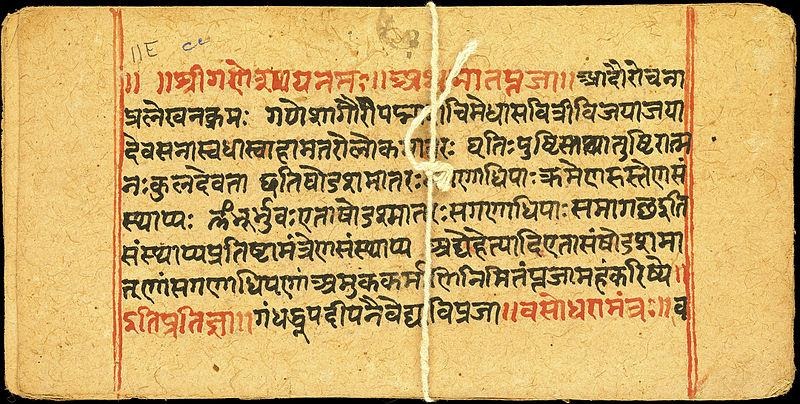 ॥E
॥ ॥श्रीगणेशायनमः॥ अथ मातृपूजा॥ आदौरोचना
प्रलेखनक्रमः गणेशगौरीपद्माशचिमेधासवित्रीविजयाजया
देवसेनास्वधास्वाहामातरोलोकमातरः धृतिःपुष्टिस्तथातुष्टिरात्म
नःकुलदेवता इतिषोडशमातरः गणाधिपाःक्रमेणहस्तेणसं
स्थाप्यः भूर्भुवःएताषोडशमातरःसगणाधिपाःसमागछइति
संस्थाप्यप्रतिष्ठामंत्रेणसंस्थाप्य अद्येहेत्यादिएतासंषोडशमा
तृणांसगणाधिपाणांअमुककर्म निमितंपूजामहंकरिष्ये॥
इतिप्रतिज्ञा॥गंधपुष्पधूपदीपनैवेद्य विपूजा॥वसोधरामंत्रः॥व